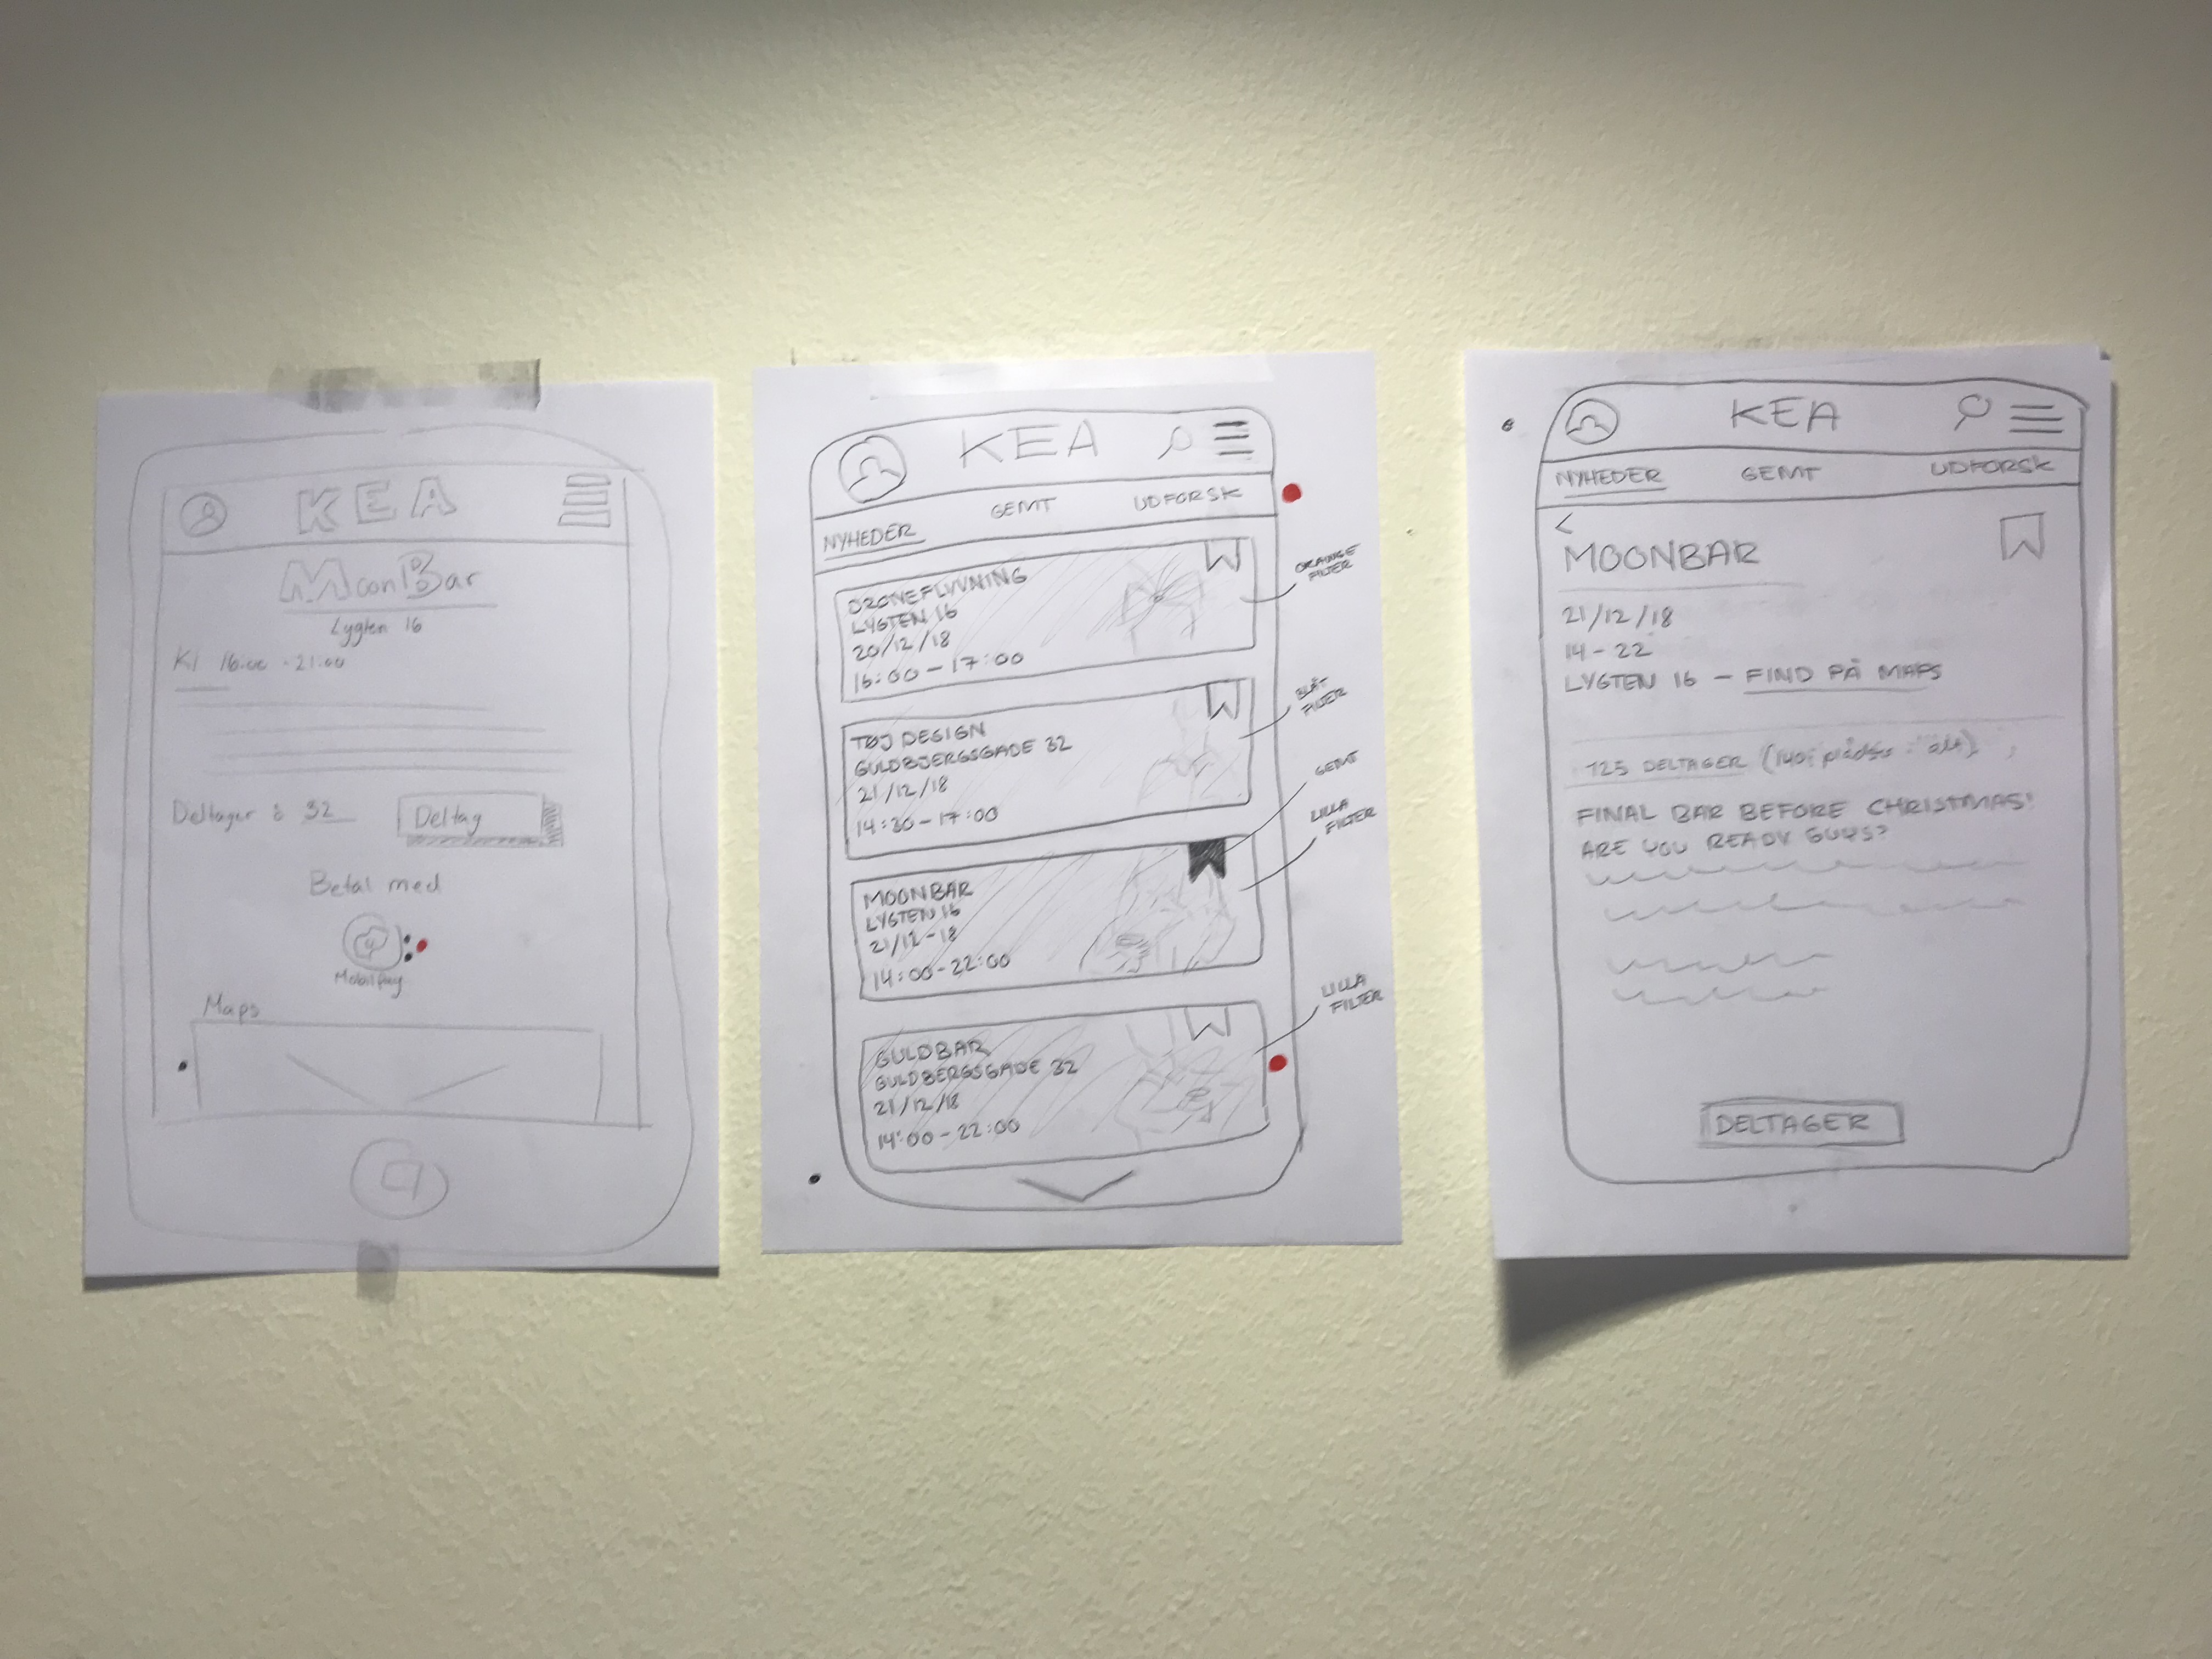 KEA
MoonBar
Lygten 16
Kl 16:00 - 21:00
Deltager : 32
Deltag
Betal med
Mobilpay
Maps
KEA
NYHEDER GEMT UDFORSK
DRONEFLYVNING
LYGTEN 16
20/12/18
16:00 - 17:00
ORANGE
FILTER
TØJ DESIGN
GULDBJERGSGADE 32
21/12/18
14:30 - 17:00
BLÅT
FILTER
GEMT
MOONBAR
LYGTEN 16
21/12-18
14:00 - 22:00
LILLA
FILTER
GULDBAR
GULDBERGSGADE 32
21/12/18
14:00 - 22:00
LILLA
FILTER
KEA
NYHEDER GEMT UDFORSK
<
MOONBAR
21/12/18
14 - 22
LYGTEN 16 - FIND PÅ MAPS
125 DELTAGER (140 pladser i alt)
FINAL BAR BEFORE CHRISTMAS!
ARE YOU READY GUYS?
DELTAGER